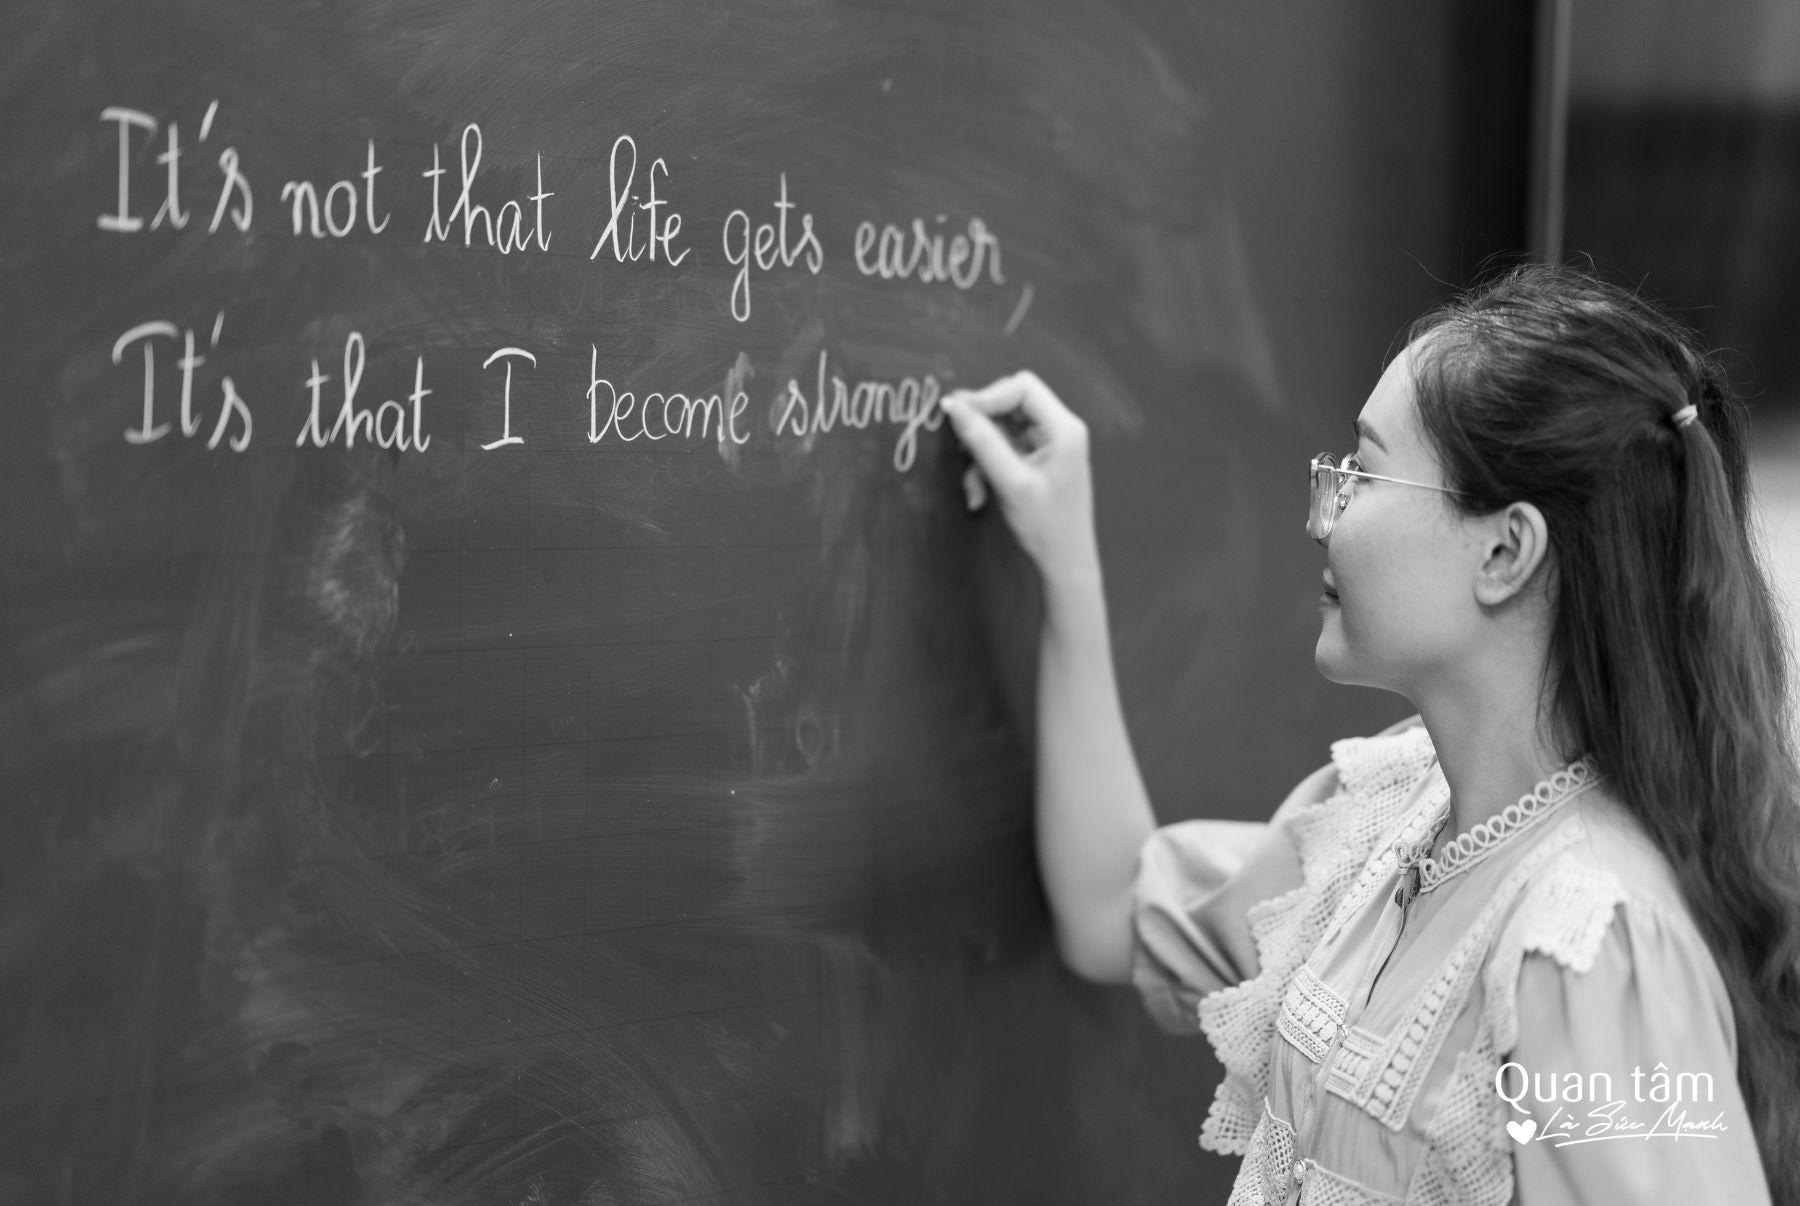 It's not that life gets easier,
It's that I become stronge
Quan tâm
Là Sức Mạnh